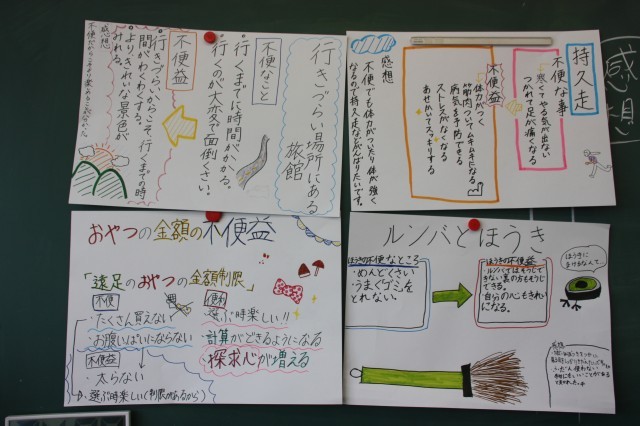 行きづらい場所にある
旅館
不便なこと
行くまでに時間がかかる。
行くのが大変で面倒くさい。
不便益
行きづらいからこそ、行くまでの時
間がわくわくする。
よりきれいな景色が
みれる。
感想
持久走
不便な事
寒くてやる気が出ない
つかれて足が痛くなる
不便益
体力がつく
筋肉ついてムキムキになる
病気を予防できる
ストレスがなくなる
あせかいてスッキリする
感想
不便でも体力がついたり体が強く
なるので持久走などがんばりたいです。
感想
おやつの金額の不便益
「遠足のおやつの金額制限」
不便
・たくさん買えない
・お腹いっぱいにならない
不便益
・太らない
・選ぶ時楽しい(制限があるから)
便利
選ぶ時楽しい!!
計算ができるようになる
探求心が増える
ルンバとほうき
ほうきの不便なところ
・めんどくさい
・うまくゴミを
とれない。
ほうきの不便益
・ルンバではそうじで
きない裏の方もそうじ
できる。
・自分の心もきれい
になる。
ほうきに
まけるなんて…
感想